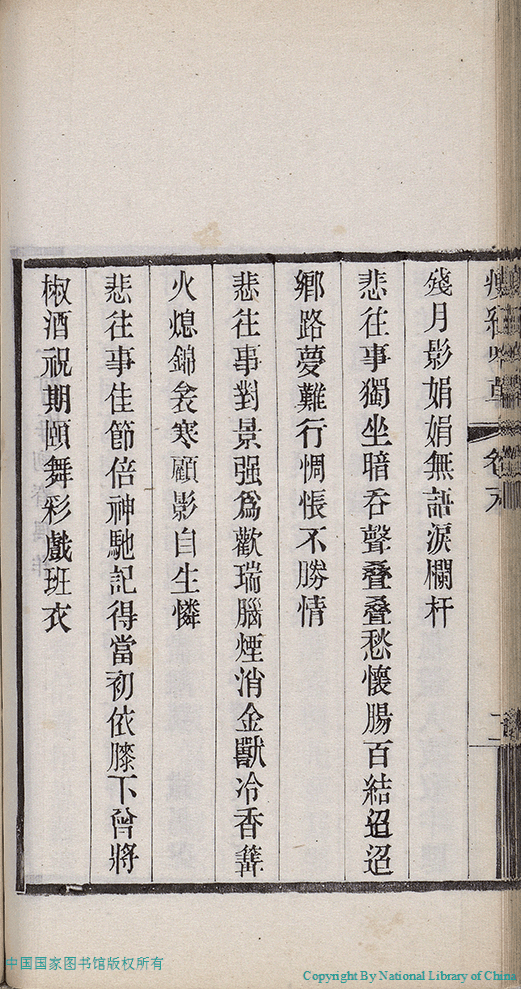 殘月影娟娟無語淚欄杆
悲往事獨坐暗吞聲叠叠愁懷腸百結迢迢
鄉路夢難行惆悵不勝情
悲往事對景强爲歡瑞腦煙消金獸冷香篝
火熄錦衾寒顧影自生憐
悲往事佳節倍神馳記得當初依膝下曾將
椒酒祝期頤舞彩戲班衣
二
中国国家图书馆版权所有
Copyright By National Library of China